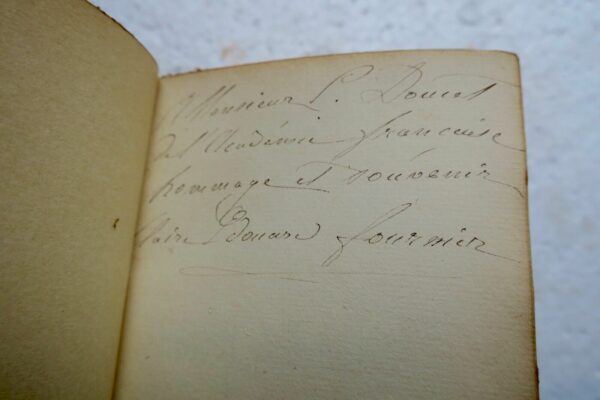 A Monsieur C. Doucet
de l'Académie française
hommage et souvenir
Claire Edouard Fournier